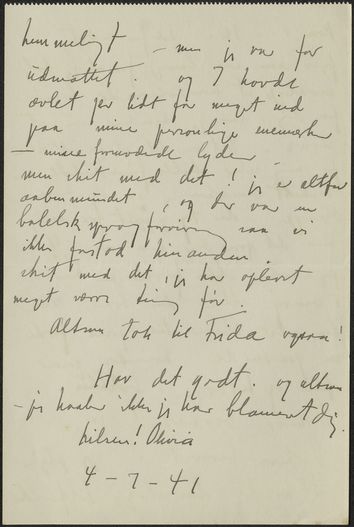 hemmeligt – men jeg var for
udmattet. og I hovde
ævlet jer lidt for meget ind
paa mine personlige enemærker
– mine formodede lyder
men skit med det! jeg er altfor
aabenmundet, og der var en
babelsk sprogforvirring saa vi
ikke forstod hinanden.
skit med det, jeg har oplevet
meget værre ting før.
Altsaa tak til Frida ogsaa!
Hav det godt. og altsaa
– jeg haaber ikke jeg har blameret dig.
hilsen! Olivia
4 – 7 – 41